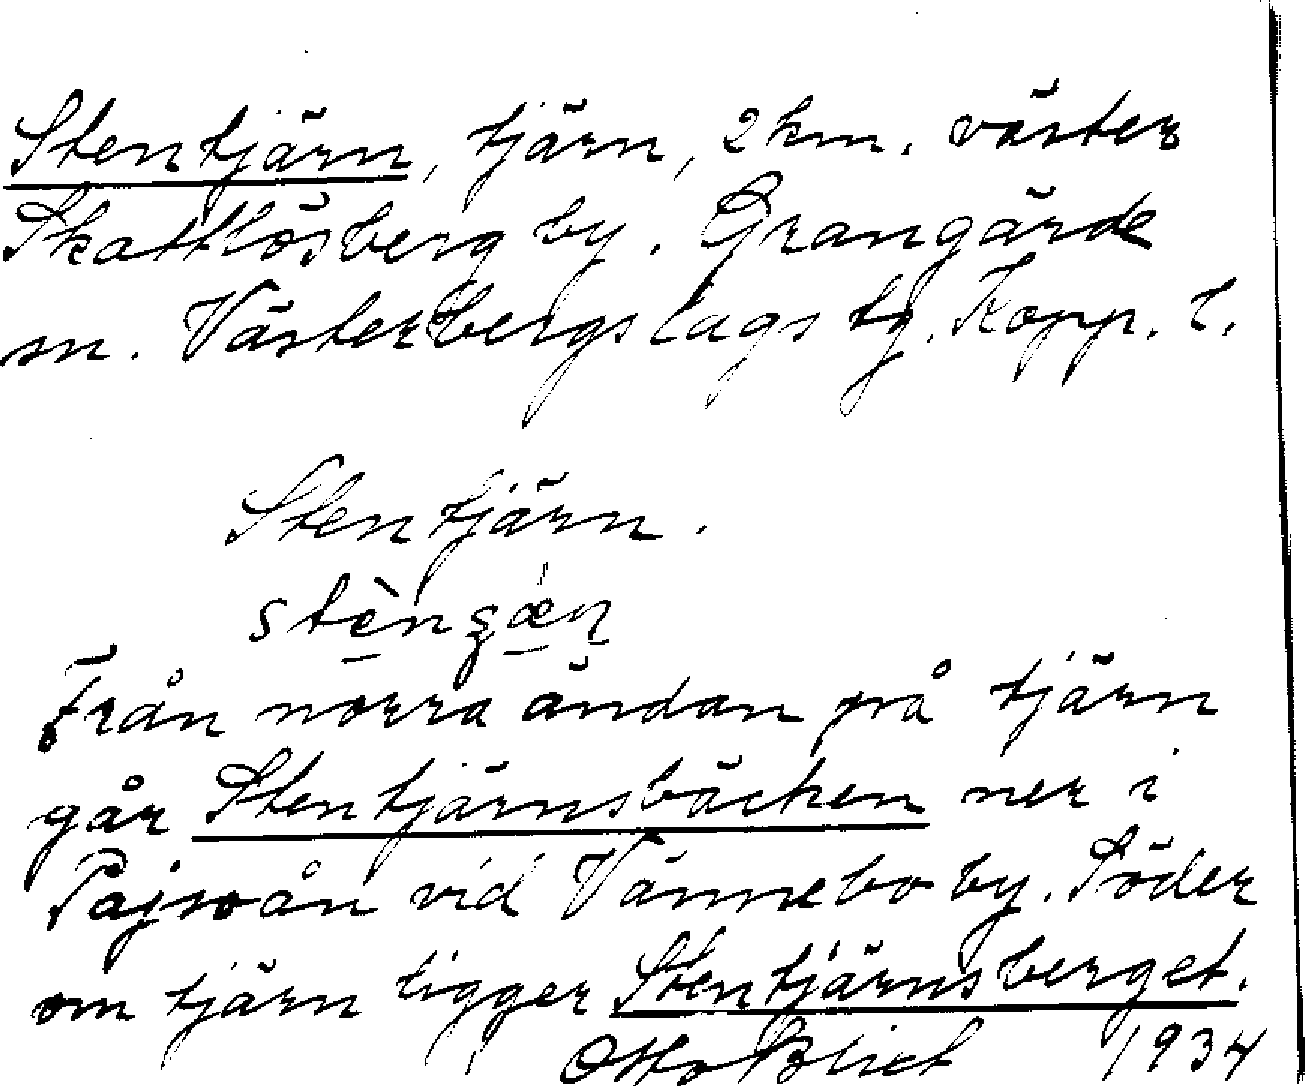 Stentjärn, tjärn, 2 km. väster
Skattlösberg by. Grangärde
sn. Västerbergslags tg. Kopp. l.
Stentjärn.
Från norra ändan på tjärn
går Stentjärnsbäcken ner i
Pajsoån vid Vännebo by. Söder
om tjärn ligger Stentjärnsberget.
Otto Blixt 1934